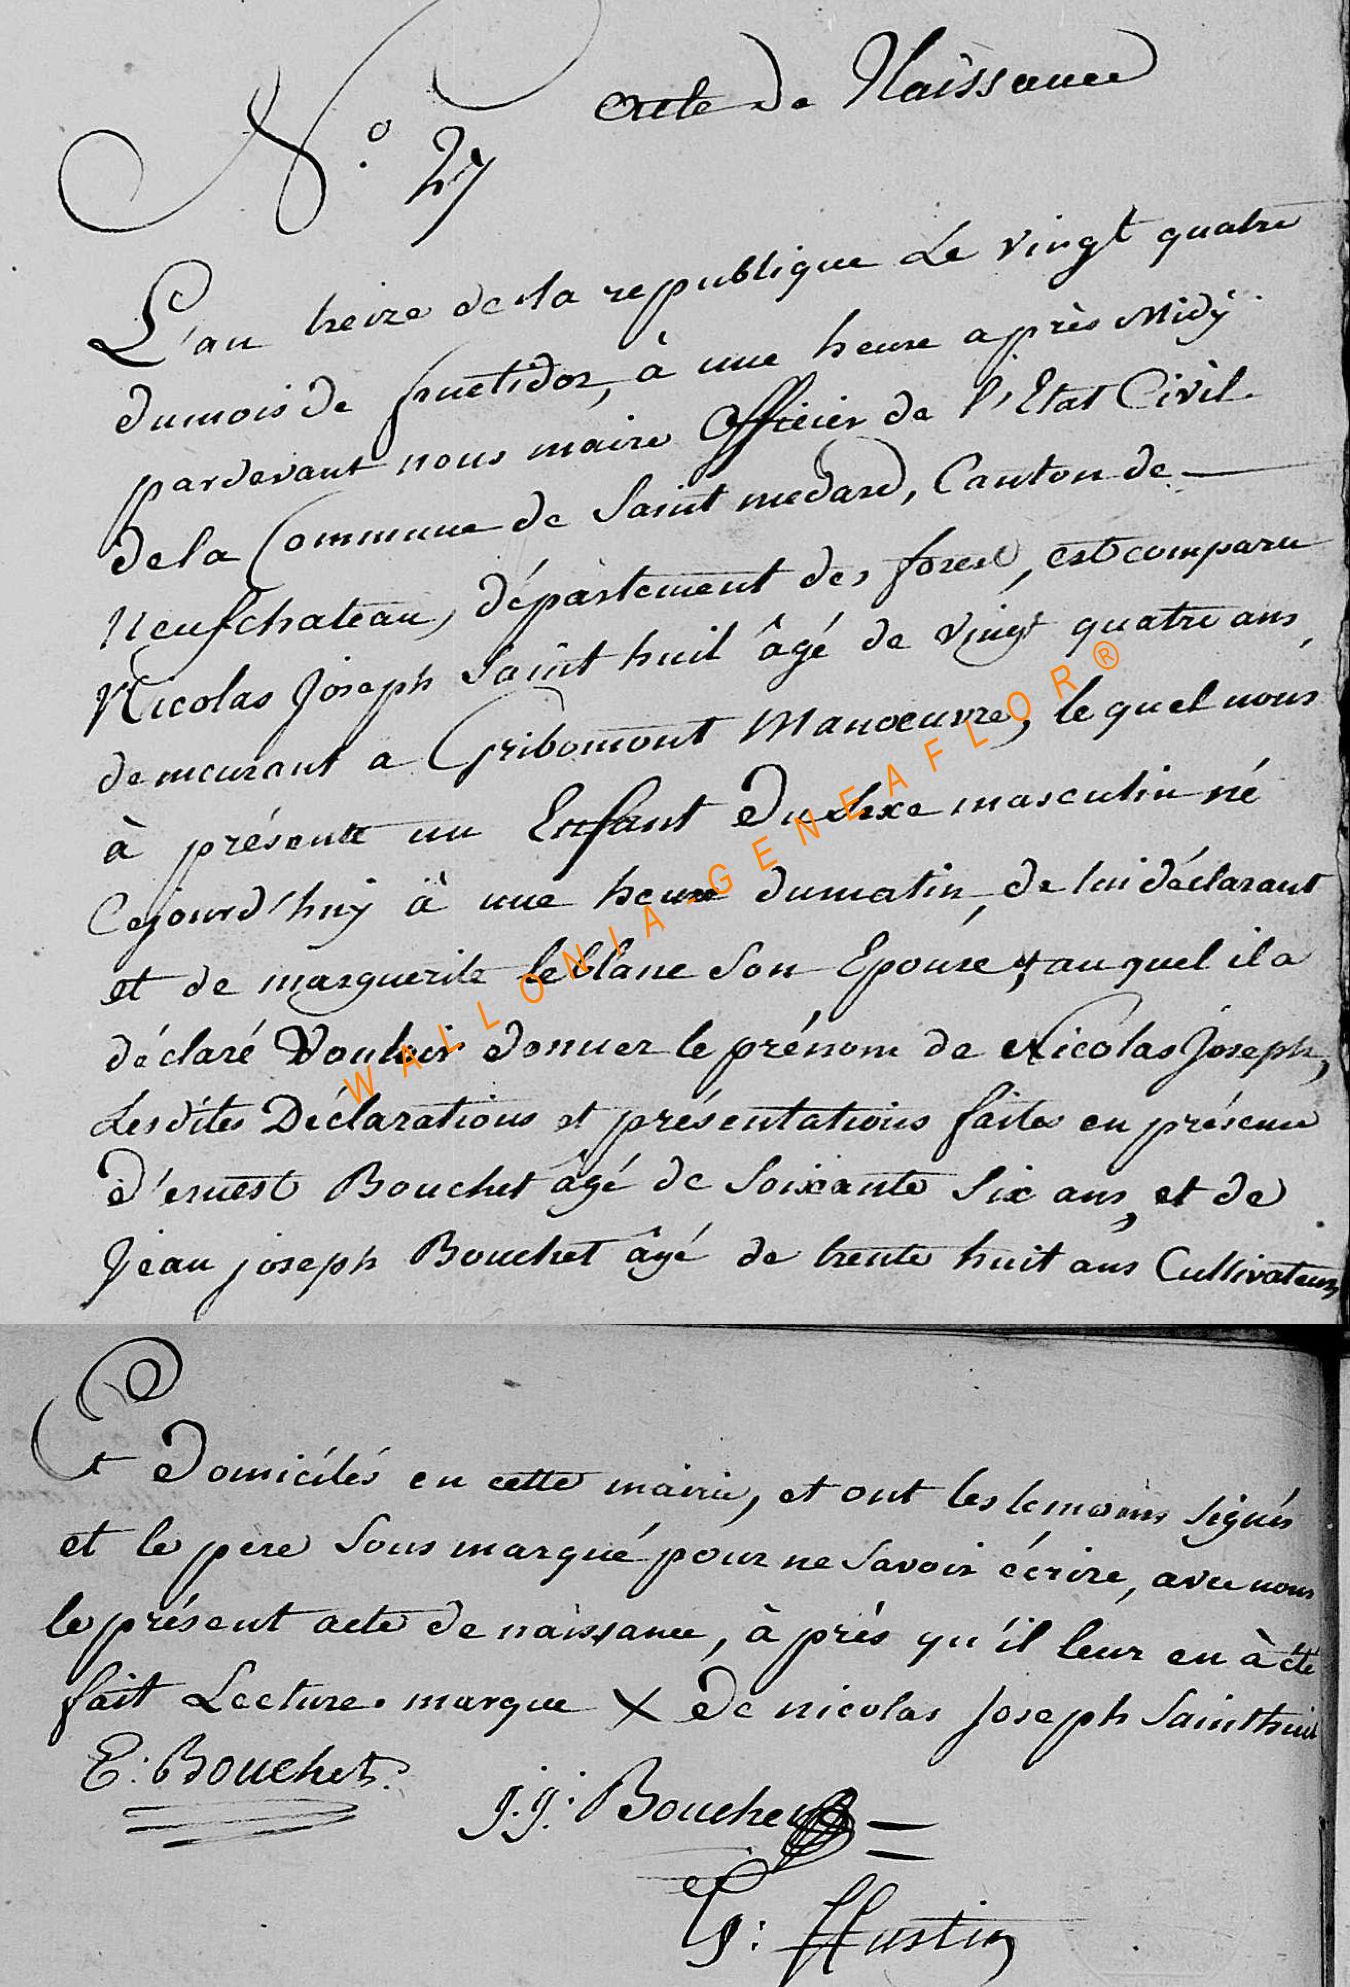 acte de Naissance
N.o 27
L'an treize de la republique Le vingt quatre
du mois de fructidor, à une heure après Midÿ
pardevant nous maire Officier de l'Etat Civil
de la Commune de Saint medard, Canton de
Neufchateau, département des forest, est comparu
Nicolas Joseph Saint huil âgé de vingt quatre ans,
demeurant a Gribomont Manoeuvre, le quel nous
à présenté un Enfant du sexe masculin né
Cejourd'huy à une heure du matin, de lui déclarant
et de marguerite leblanc Son Epouse, et auquel il a
déclaré Vouloir donner le prénom de Nicolas Joseph,
Lesdites Déclarations et présentations faites en présence
d'ernest Bouchet âgé de Soixante Six ans, et de
Jean joseph Bouchet âgé de trente huit ans Cultivateurs,
Et Domicilés en cette mairie, et ont les temoins signés
et le pere Sous marqué pour ne savoir écrire, avec nous
le présent acte de naissance, à près qu'il leur en à été
fait Lecture. marque X de nicolas Joseph Sainthuil
E. Bouchet.
j.j. Bouchet
G: Hustin
WALLONIA-GENEAFLOR®